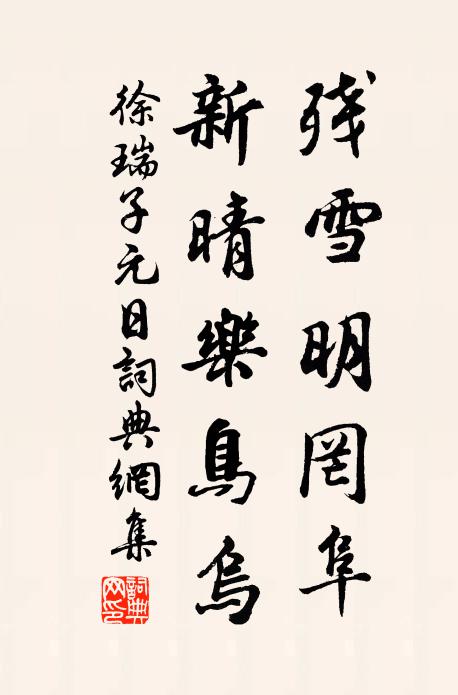 残雪明罔阜
新晴樂鳥烏
徐瑞子元日詞典網集
詞典
网印